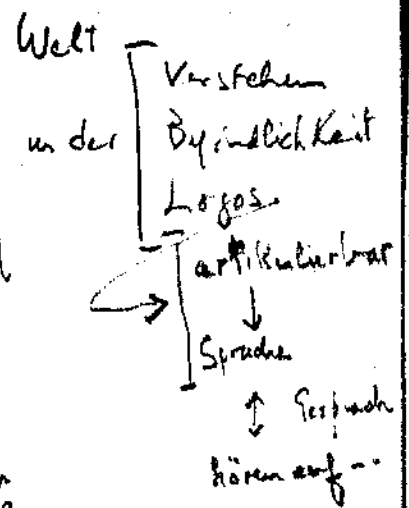 Welt
Verstehen
in der Befindlichkeit
Logos
artikulierbar
Sprache
Gespräch
hören auf --